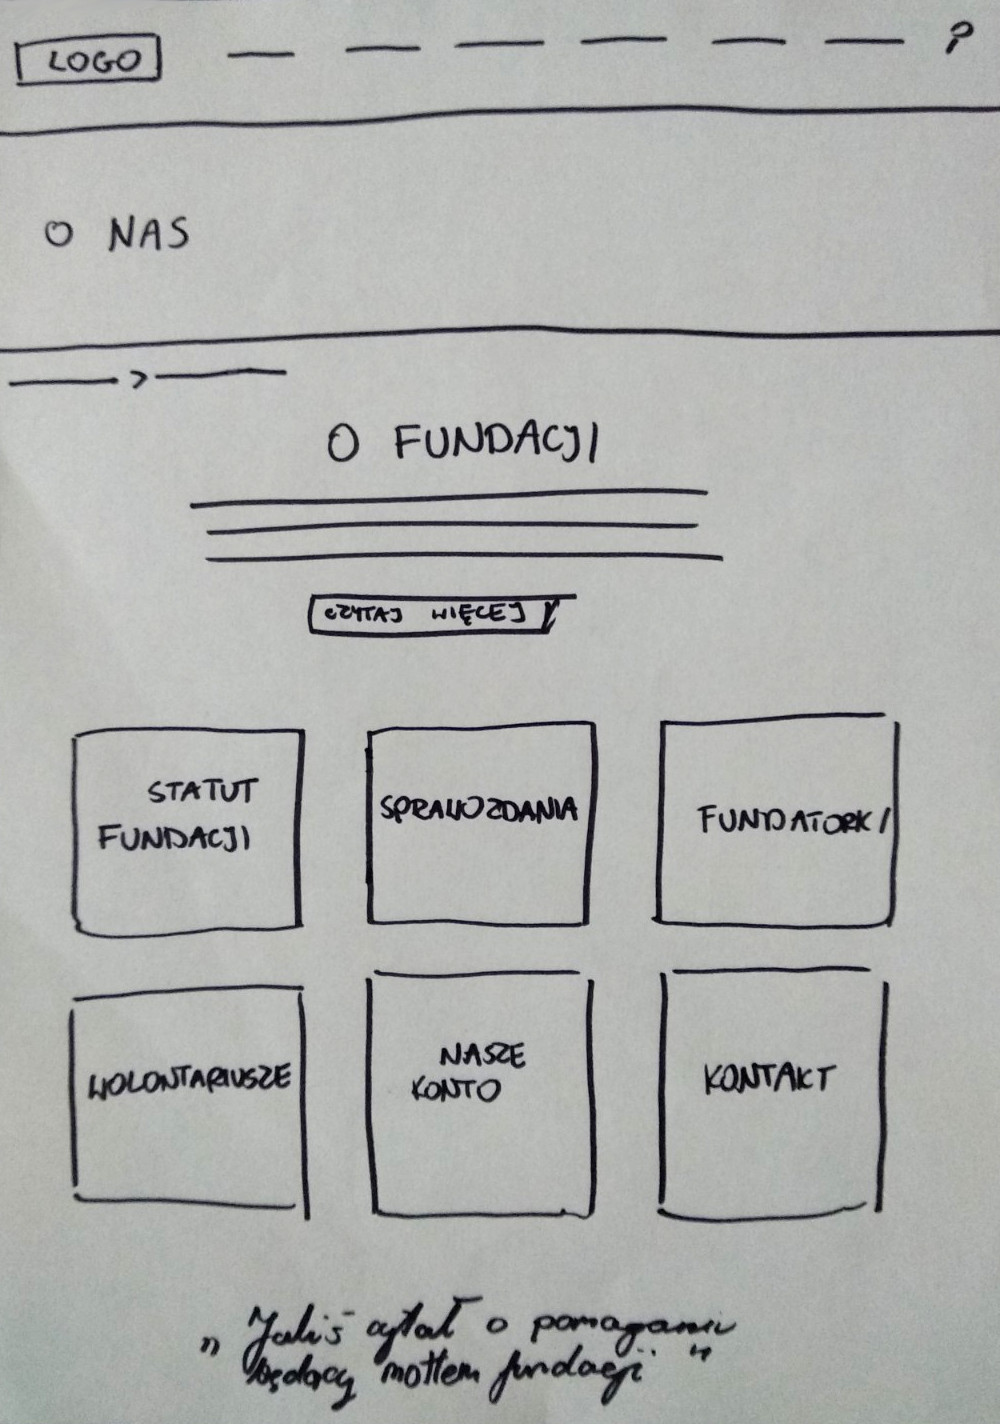 LOGO
O NAS
>
O FUNDACJI
CZYTAJ WIĘCEJ
STATUT
FUNDACJI
SPRAWOZDANIA
FUNDATORKI
WOLONTARIUSZE
NASZE
KONTO
KONTAKT
„Jakiś cytat o pomaganiu
będący mottem fundacji"